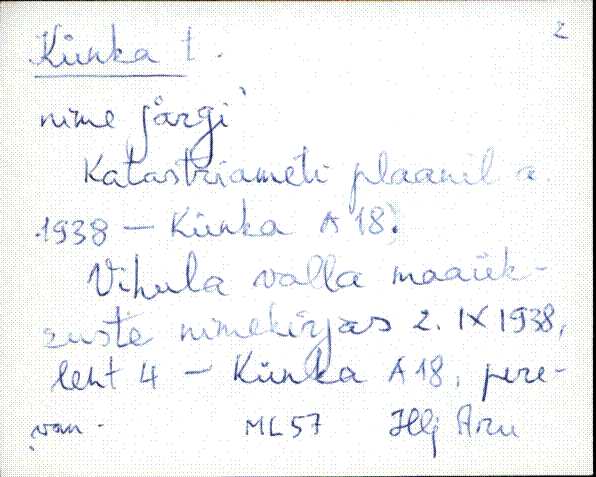 2
Künka t.
nime järgi
Katastriameti plaanil a.
1938 – Künka A 18.
Vihula valla maaük-
suste nimekirjas 2. IX 1938,
leht 4 – Künka A 18, pere-
van-
ML 57 Hlj Aru